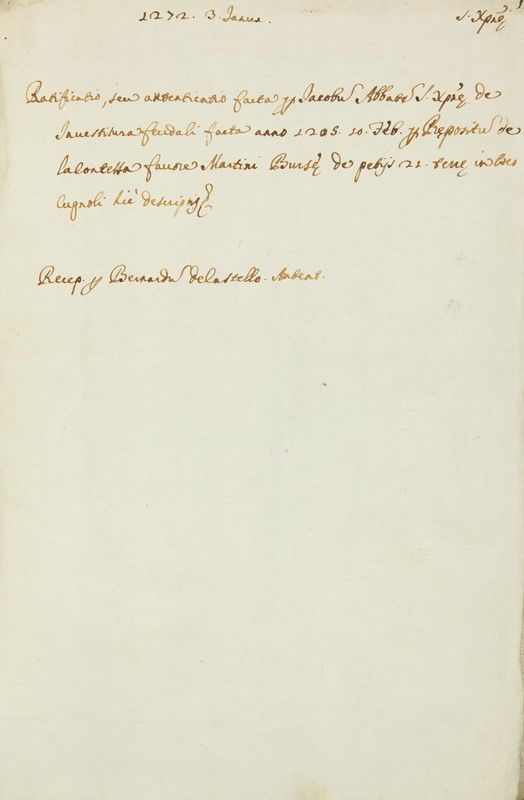 1272. 3. Janua. S. Xpñi
Ratificatio, seu autenticatio facta p Jacobu Abbate S. Xpñi de
Investitura feudali facta anno 1205. 10. Feb. p Prepositu de
Calontessa favore Martini Bursę de petijs 21. terrę in loco
Cugnoli hic descriptis
Recep. p Bernardu delastello. Autent.